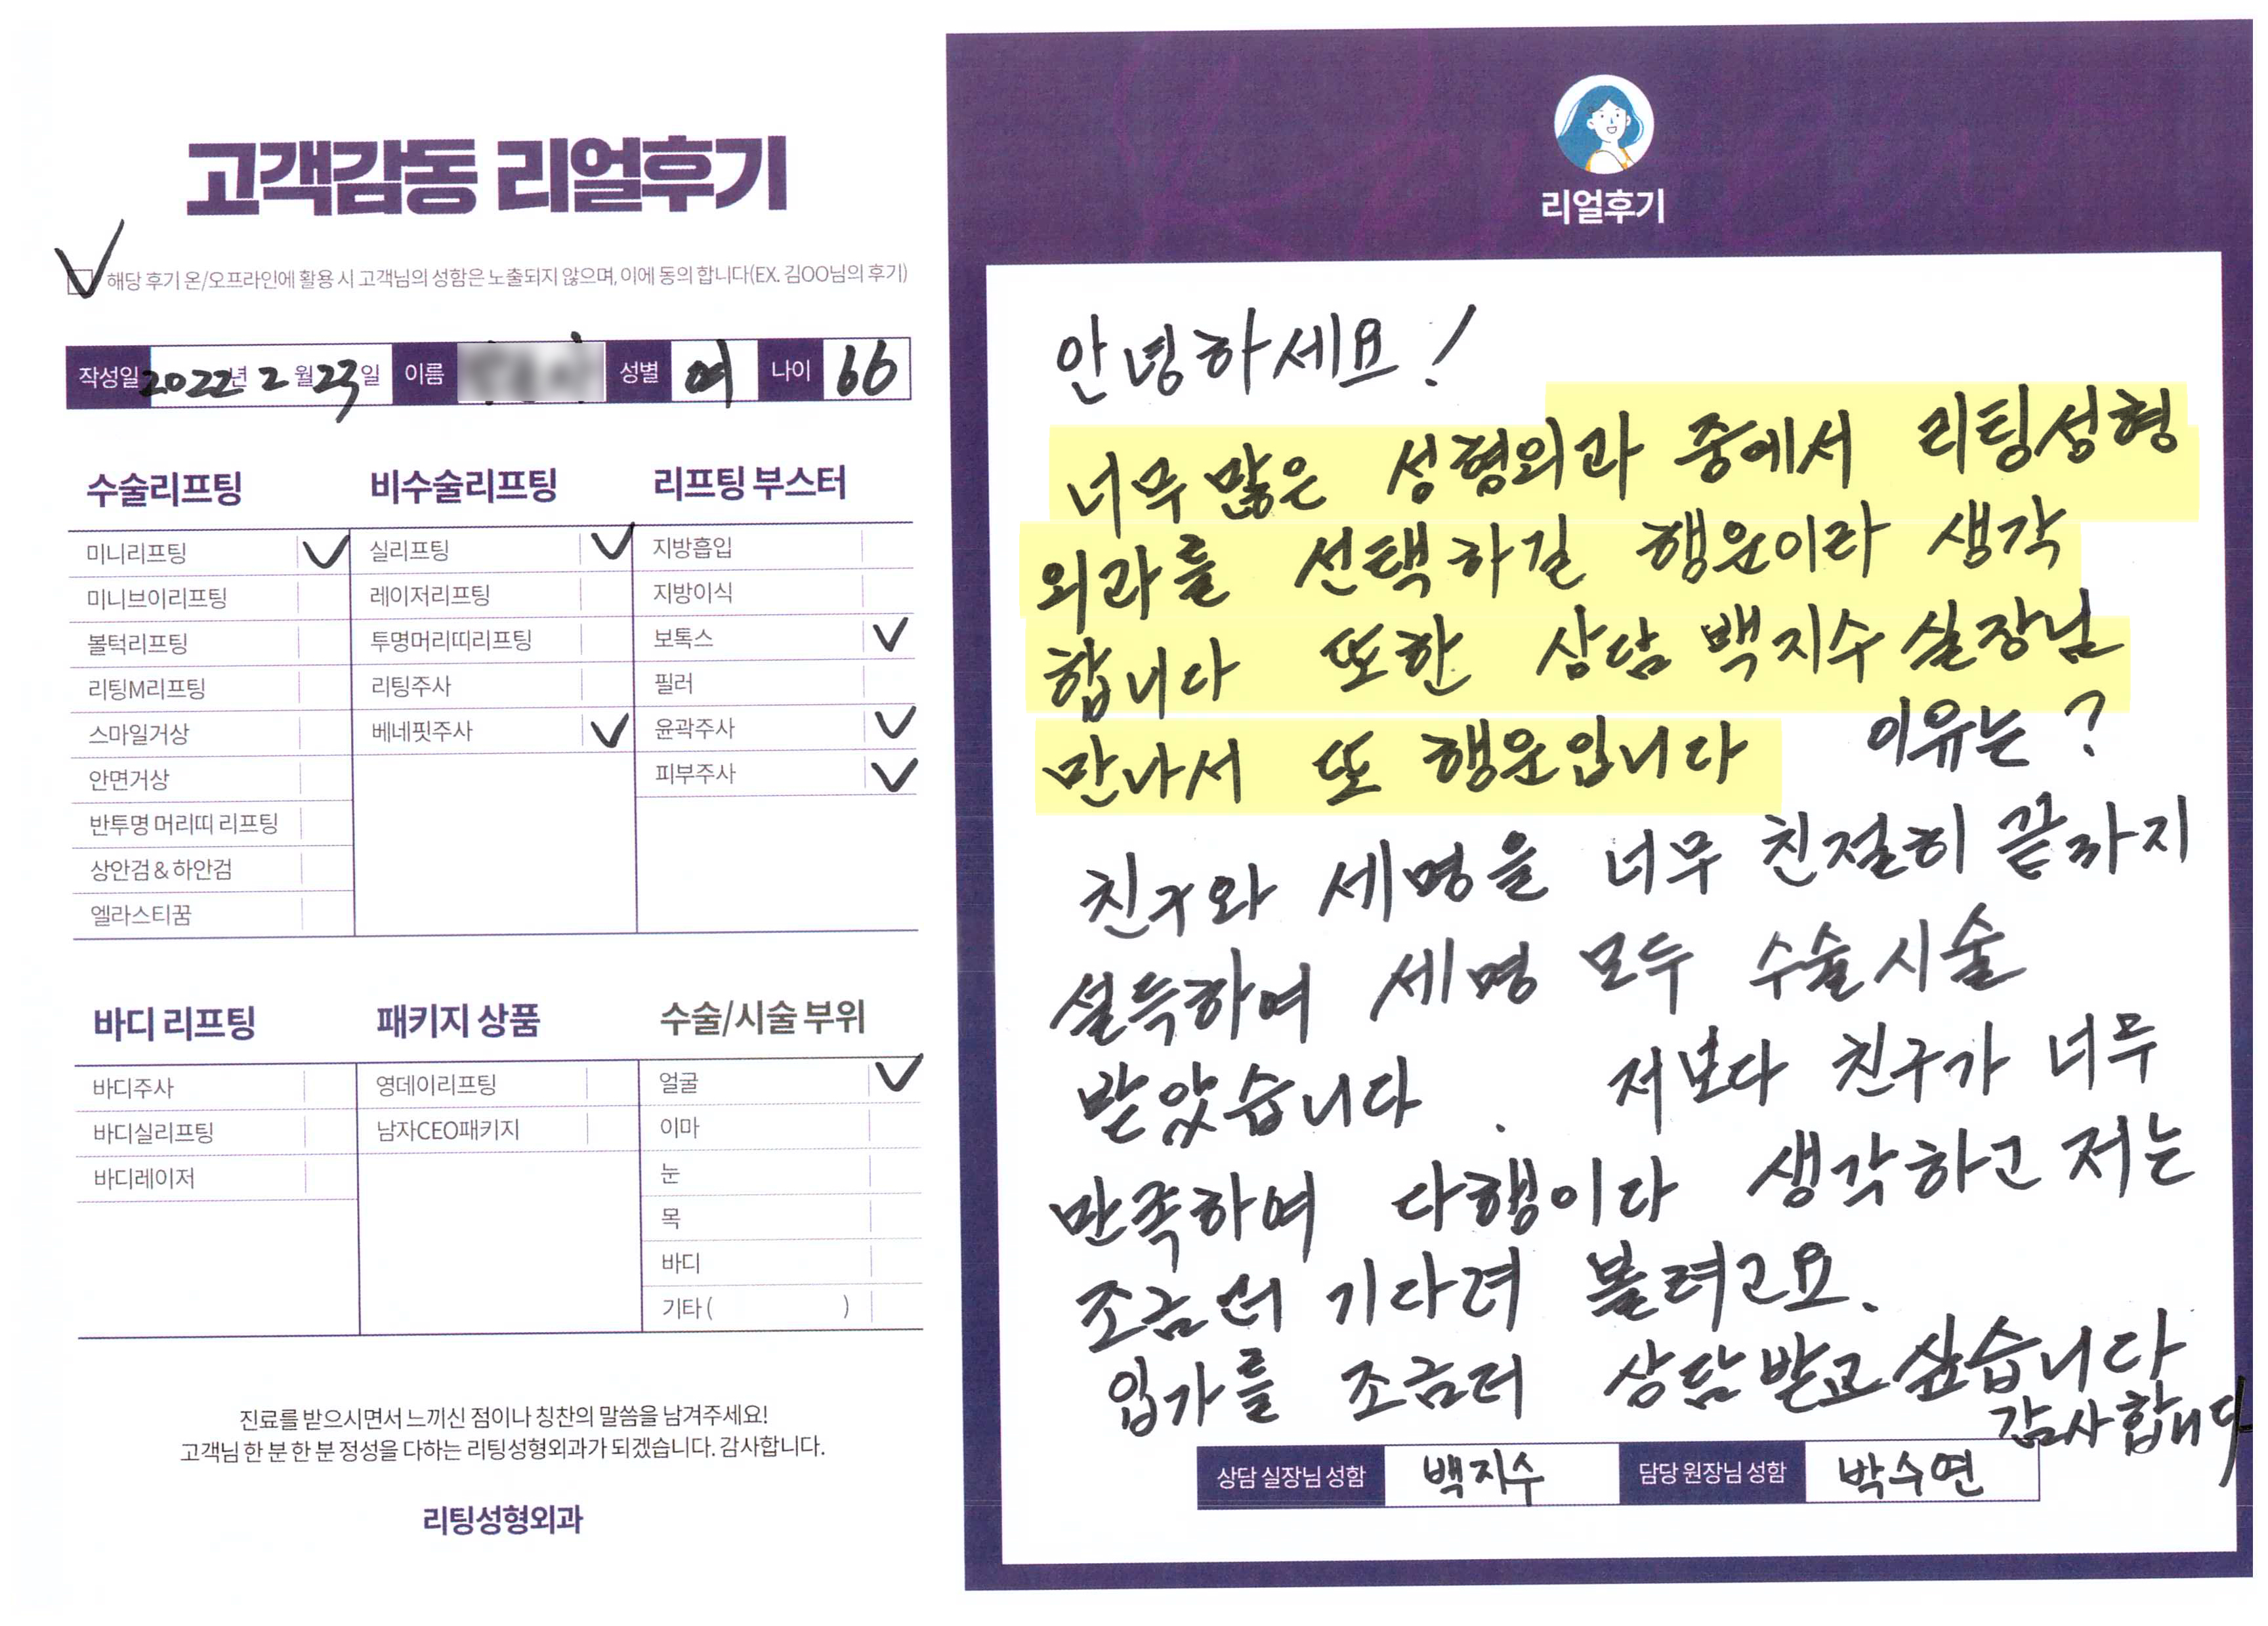 고객감동 리얼후기
해당 후기 온/오프라인에 활용 시 고객님의 성함은 노출되지 않으며, 이에 동의 합니다(EX. 김OO님의 후기)
작성일 2022년 2월 23일 이름 성별 여 나이 66
수술리프팅
미니리프팅
미니브이리프팅
볼턱리프팅
리팅M리프팅
스마일거상
안면거상
반투명 머리띠 리프팅
상안검 & 하안검
엘라스티꿈
비수술리프팅
실리프팅
레이저리프팅
투명머리띠리프팅
리팅주사
베네핏주사
리프팅 부스터
지방흡입
지방이식
보톡스
필러
윤곽주사
피부주사
바디 리프팅
바디주사
바디실리프팅
바디레이저
패키지 상품
영데이리프팅
남자CEO패키지
수술/시술 부위
얼굴
이마
눈
목
바디
기타 ( )
진료를 받으시면서 느끼신 점이나 칭찬의 말씀을 남겨주세요!
고객님 한 분 한 분 정성을 다하는 리팅성형외과가 되겠습니다. 감사합니다.
리팅성형외과
리얼후기
안녕하세요!
너무 많은 성형외과 중에서 리팅성형
외과를 선택하길 행운이라 생각
합니다 또한 상담 백지수 실장님
만나서 또 행운입니다 이유는?
친구와 세명을 너무 친절히 끝까지
설득하여 세명 모두 수술시술
받았습니다. 저보다 친구가 너무
만족하여 다행이다 생각하고 저는
조금더 기다려 볼려고요.
입가를 조금더 상담받고 싶습니다
감사합니다
상담 실장님 성함 백지수 담당 원장님 성함 박수연